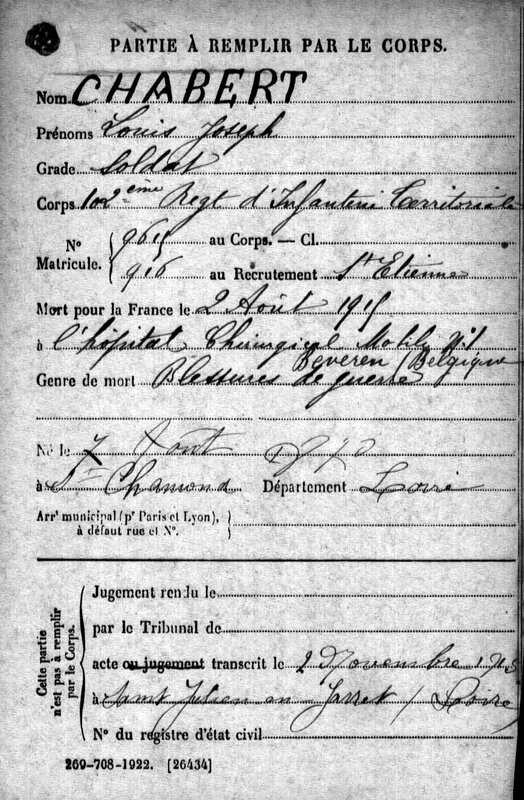 PARTIE À REMPLIR PAR LE CORPS.
Nom CHABERT
Prénoms Louis Joseph
Grade Soldat
Corps 102ème Regt d'Infanterie Territoriale
No Matricule. { 9615 au Corps. — Cl.
916 au Recrutement St Etienne
Mort pour la France le 2 Août 1915
à l'hôpital Chirurgical Mobile N°1
Beveren (Belgique
Genre de mort Blessures de guerre
Né le 7 Aout 1870
à St Chamond Département Loire
Arrt municipal (pr Paris et Lyon),
à défaut rue et N°.
Cette partie
n'est pas à remplir
par le Corps.
Jugement rendu le
par le Tribunal de
acte ou jugement transcrit le 2 Novembre 1915
à Saint Julien en Jarret (Loire)
N° du registre d'état civil
269-708-1922. [26434]